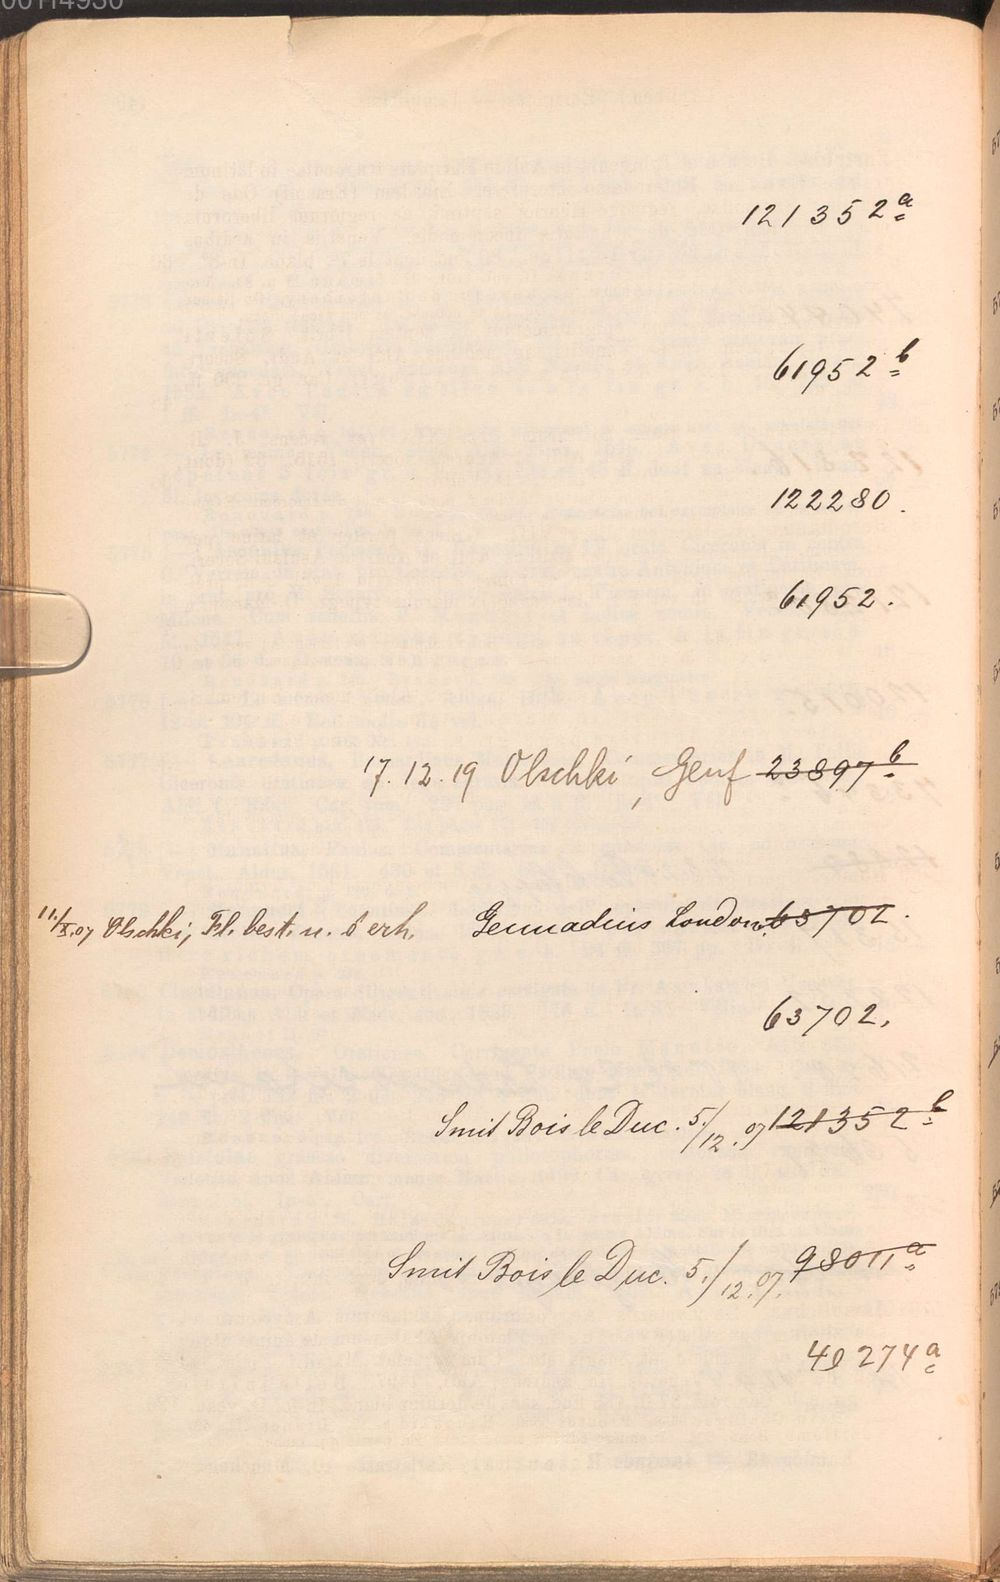 121352a
61952b
122280.
61952.
17.12.19 Olschki, Genf 23897b
11./X.07 Olschki, Fl. best. u. erh. Gennadius London. 63702.
63702.
Smit Bois le Duc. 5./12.07 121352b
Smit Bois le Duc. 5./12.07. 98011a
49274a